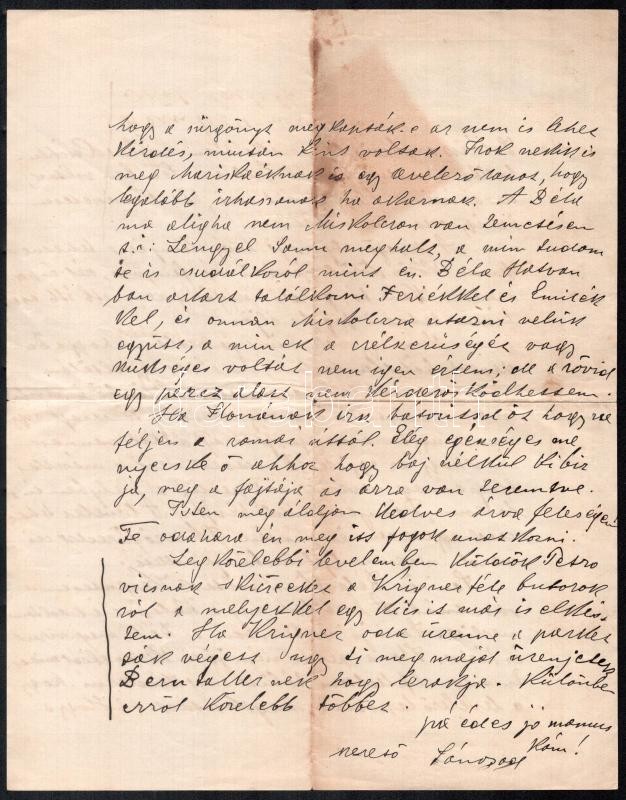 hogy a sürgönyt megkapták e az nem is lehet
kérdés, miután kint voltak. Irok nekik is
meg Mariskáéknak is egy levelező lapot, hogy
legalább irhassanak ha akarnak. A Béla
ma aligha nem Miskolczon van temetésen
t. i. Lengyel Samu meghalt, a min tudom
te is csudálkozol mint én. Béla Hatvan
ban akart találkozni Feriékkel és Emiék
kel, és onnan Miskolczra utazni velük
együtt, a minek a czélszerűségét vagy
szükséges voltát nem igen értem; de a rövid
egy percz alatt nem kérdezősködhettem.
Ha Flórának irsz, batoritsad őt hogy ne
féljen a római úttól. Elég egészséges me
nyecske ő ahhoz hogy baj nélkül kibir
ja, meg a fajtája is arra van teremtve.
Isten meg áldjon kedves árva feleségem
Te oda haza én meg itt fogok unatkozni.
Legközelebbi levelemben küldök Petro
vicsnak skizzeket a Krigner féle butorok
ról a melyekkel egy kicsit más is elkés
tem. Ha Krigner oda üzenne a parket
ták végett úgy ti meg majd üzenjetek
nek hogy lerakja. Különben
erről közelebb többet.
pá édes jó mamus
kám!
szerető Jánosod